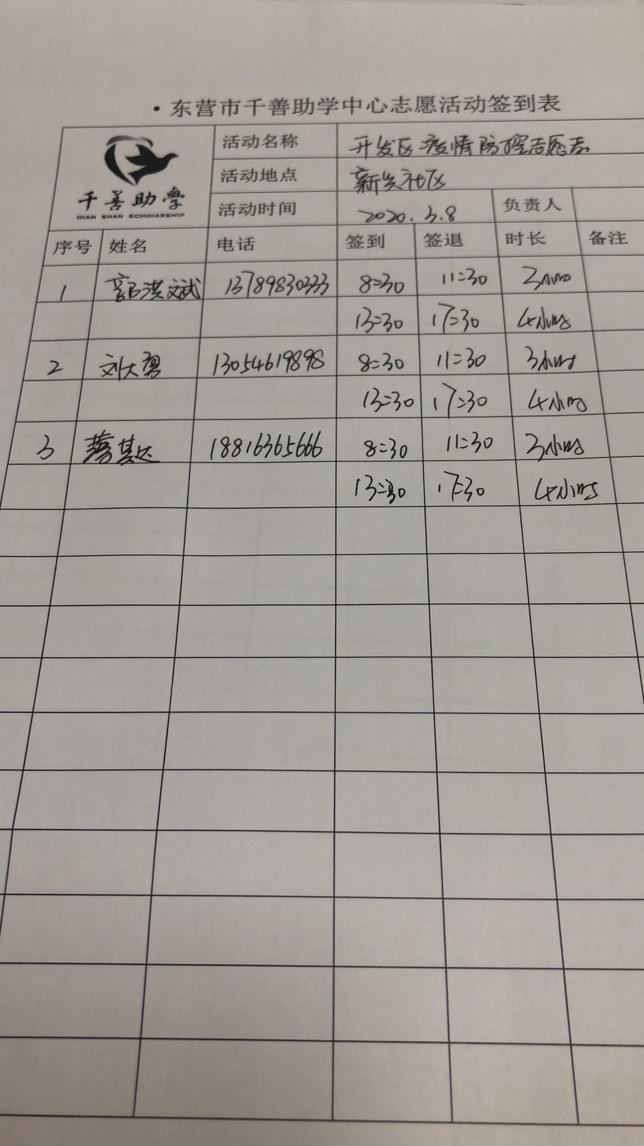 ·东营市千善助学中心志愿活动签到表
千善助學
QIAN SHAN SCHOIARSHIP
活动名称 开发区疫情防控志愿者
活动地点 新发社区
活动时间 2020.3.8 负责人
序号 姓名 电话 签到 签退 时长 备注
1 洪斌 13789830333 8:30 11:30 3小时
13:30 17:30 4小时
2 刘大勇 13054619898 8:30 11:30 3小时
13:30 17:30 4小时
3 其达 18816365666 8:30 11:30 3小时
13:30 17:30 4小时